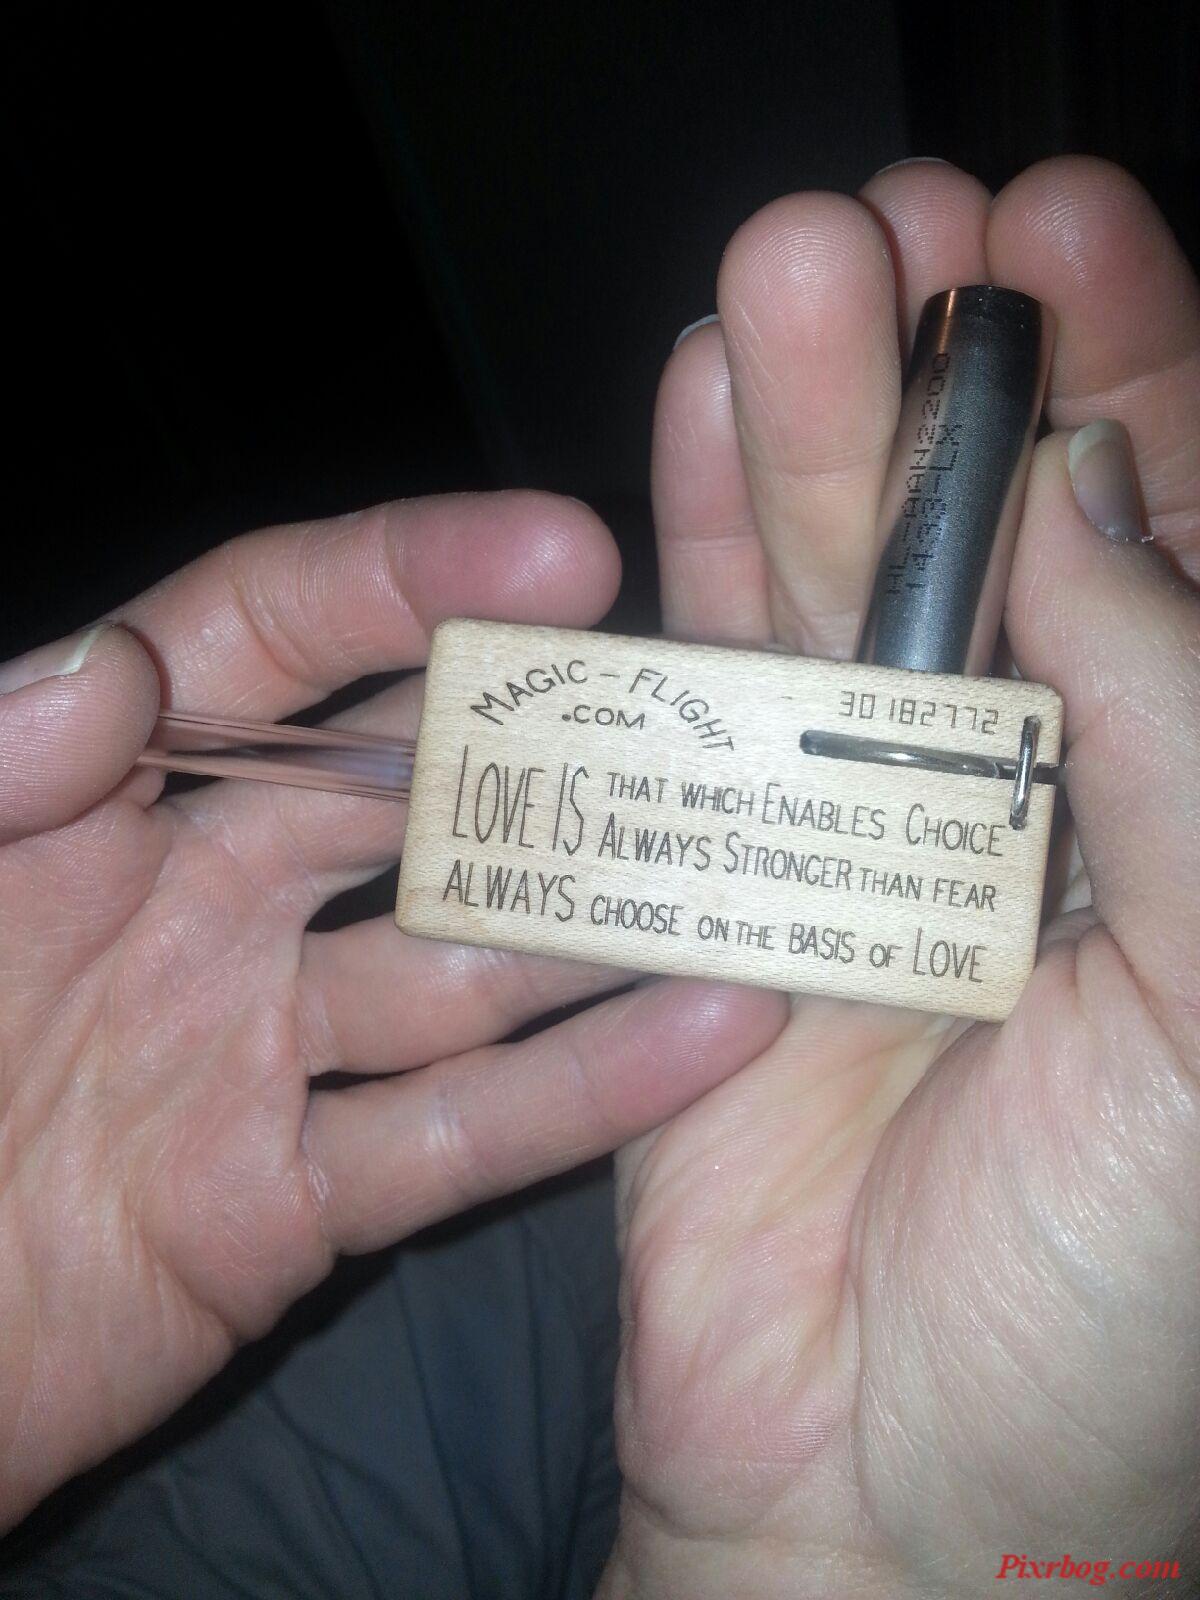 MAGIC-FLIGHT
.COM
30182772
LOVE IS THAT WHICH ENABLES CHOICE
ALWAYS STRONGER THAN FEAR
ALWAYS CHOOSE ON THE BASIS OF LOVE
Pixrbog.com